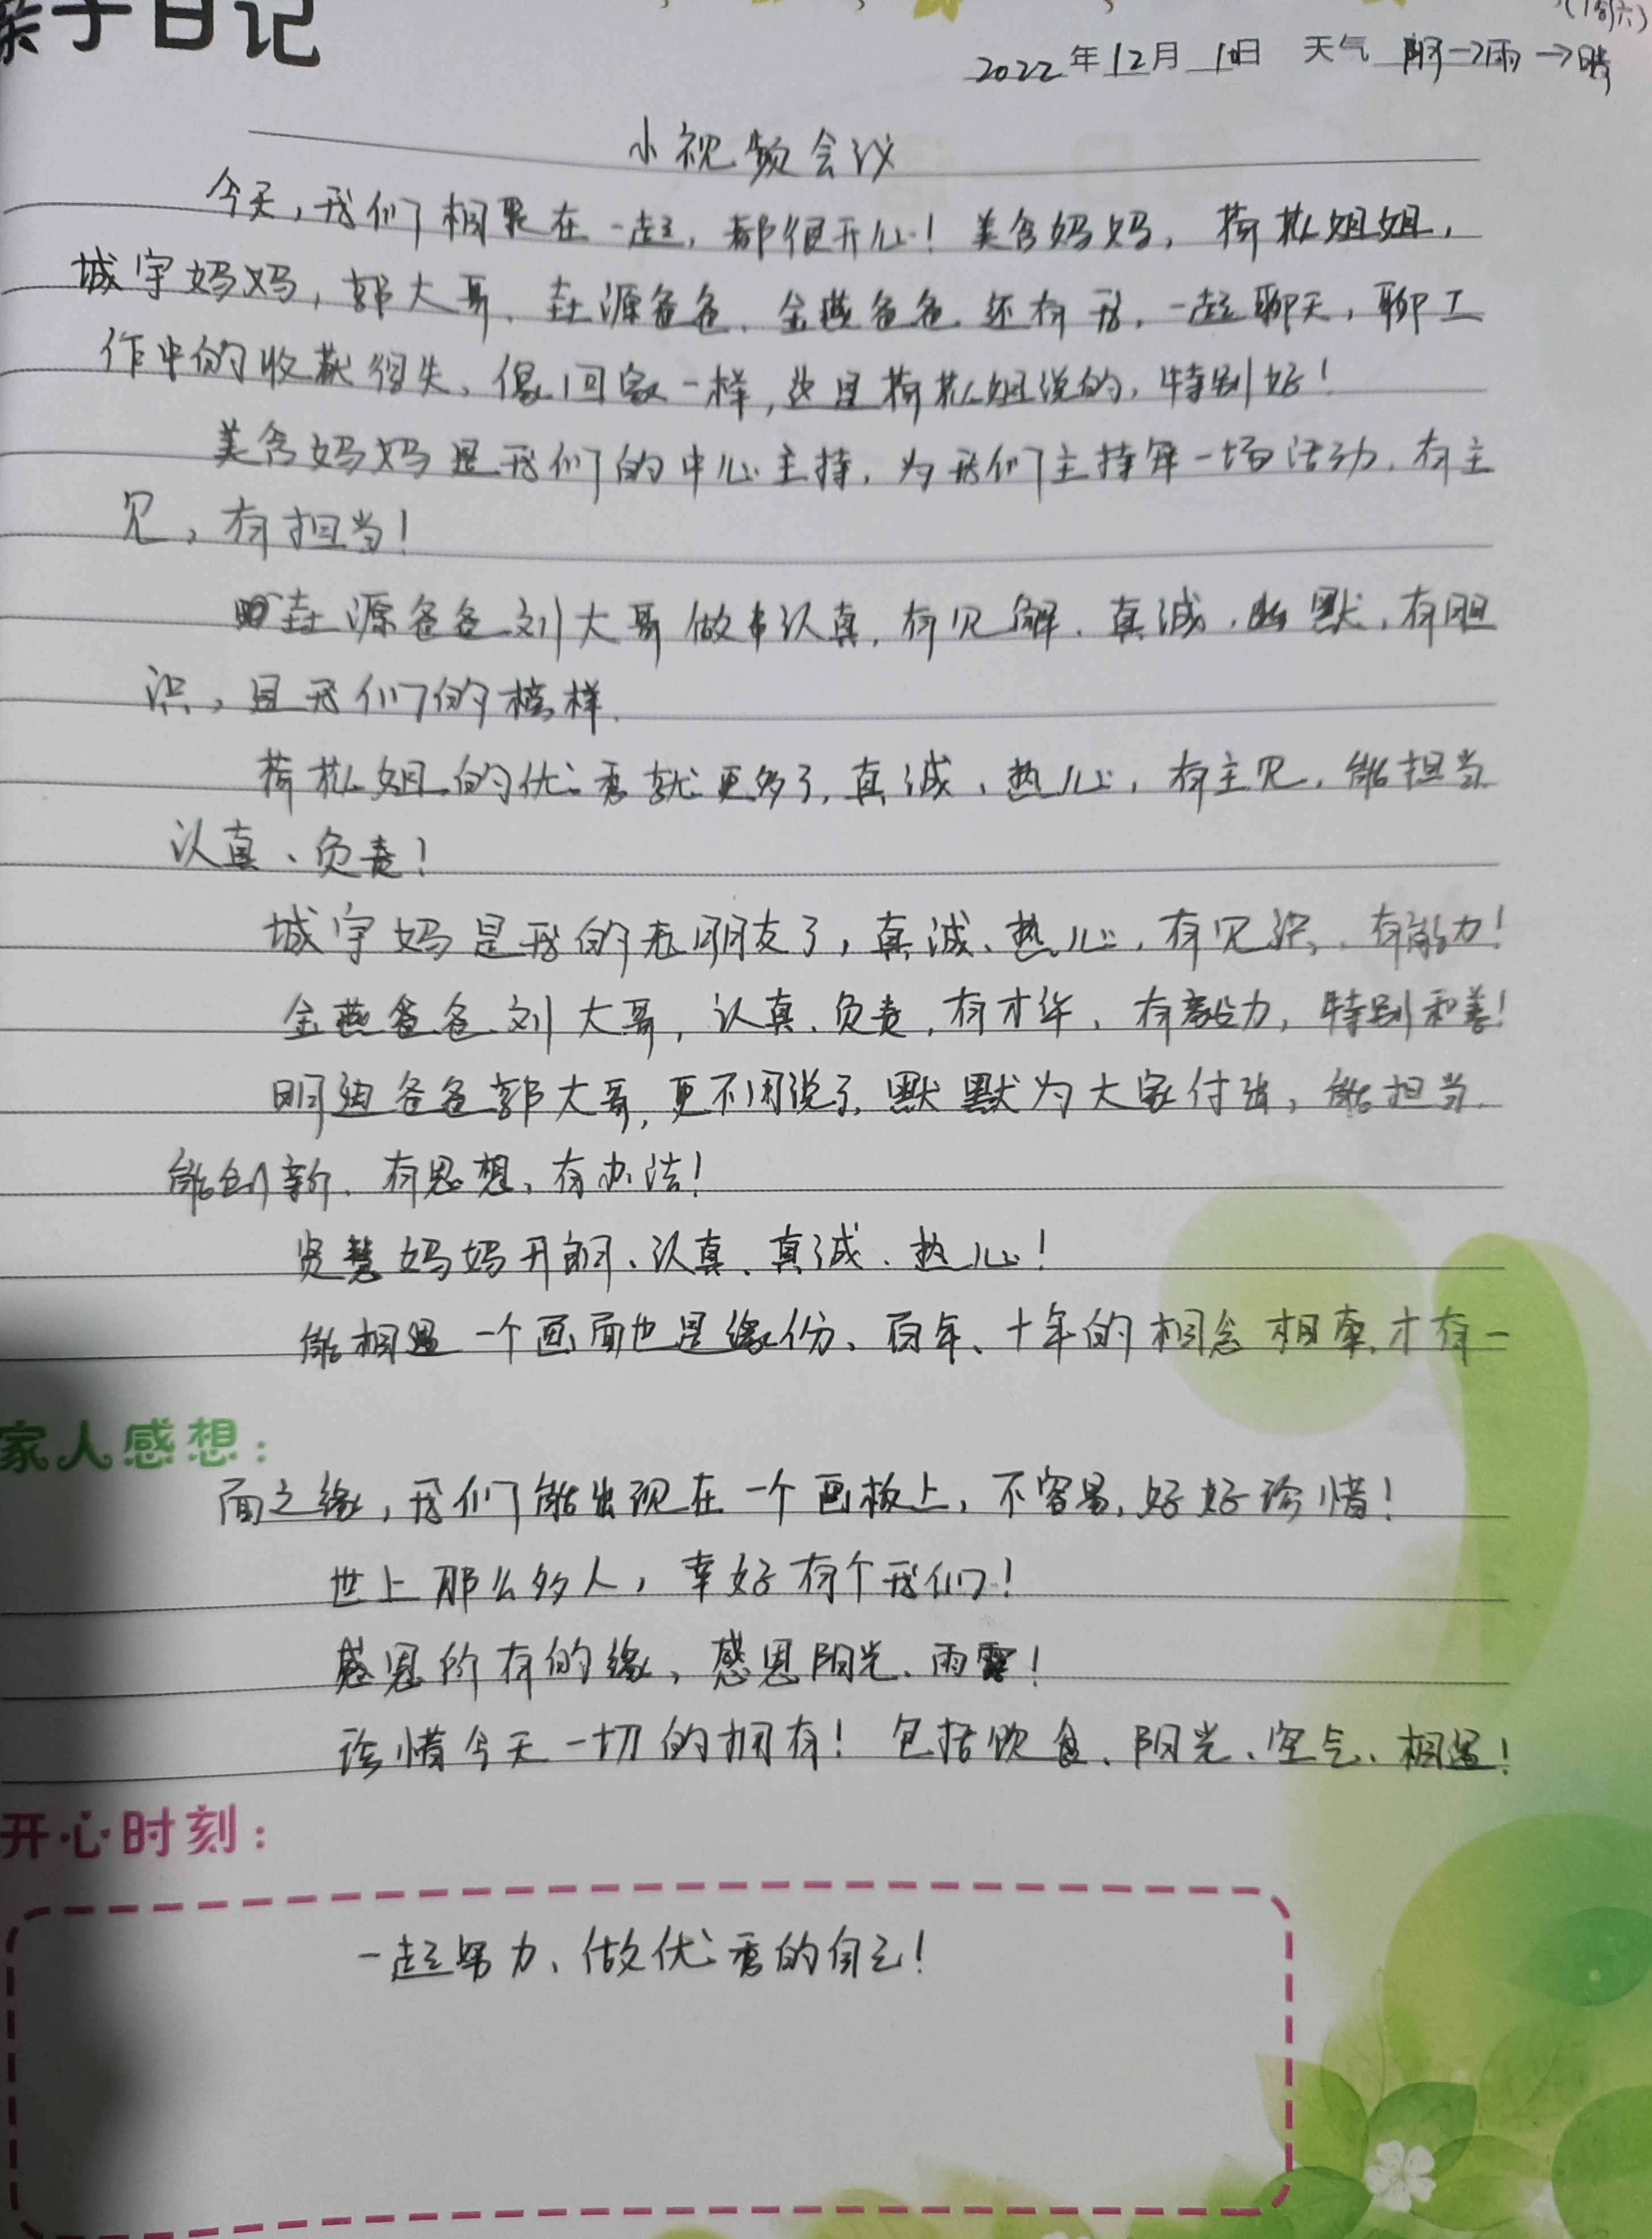 亲子日记
(周六)
2022年12月10日 天气 阴→雨→晴
小视频会议
今天,我们相聚在一起,都很开心!美含妈妈,荷花姐姐,
城宇妈妈,郭大哥、垚源爸爸、金燕爸爸还有我,一起聊天,聊工
作中的收获得失、像回家一样,这是荷花姐说的,特别好!
美含妈妈是我们的中心主持,为我们主持每一场活动,有主
见,有担当!
垚源爸爸刘大哥做事认真,有见解、真诚、幽默,有胆
识,是我们的榜样.
荷花姐的优秀就更多了,真诚、热心,有主见,能担当
认真、负责!
城宇妈是我的老朋友了,真诚、热心,有见识、有能力!
金燕爸爸刘大哥,认真、负责,有才华、有毅力,特别和善!
明迪爸爸郭大哥,更不用说了,默默为大家付出,能担当.
能创新、有思想、有办法!
贤慧妈妈开朗、认真、真诚、热心!
能相遇一个画面也是缘份、百年、十年的相念相牵,才有一
家人感想:
面之缘,我们能出现在一个画板上,不容易,好好珍惜!
世上那么多人,幸好有个我们!
感恩所有的缘,感恩阳光、雨露!
珍惜今天一切的拥有!包括饮食、阳光、空气、相遇!
开心时刻:
一起努力、做优秀的自己!